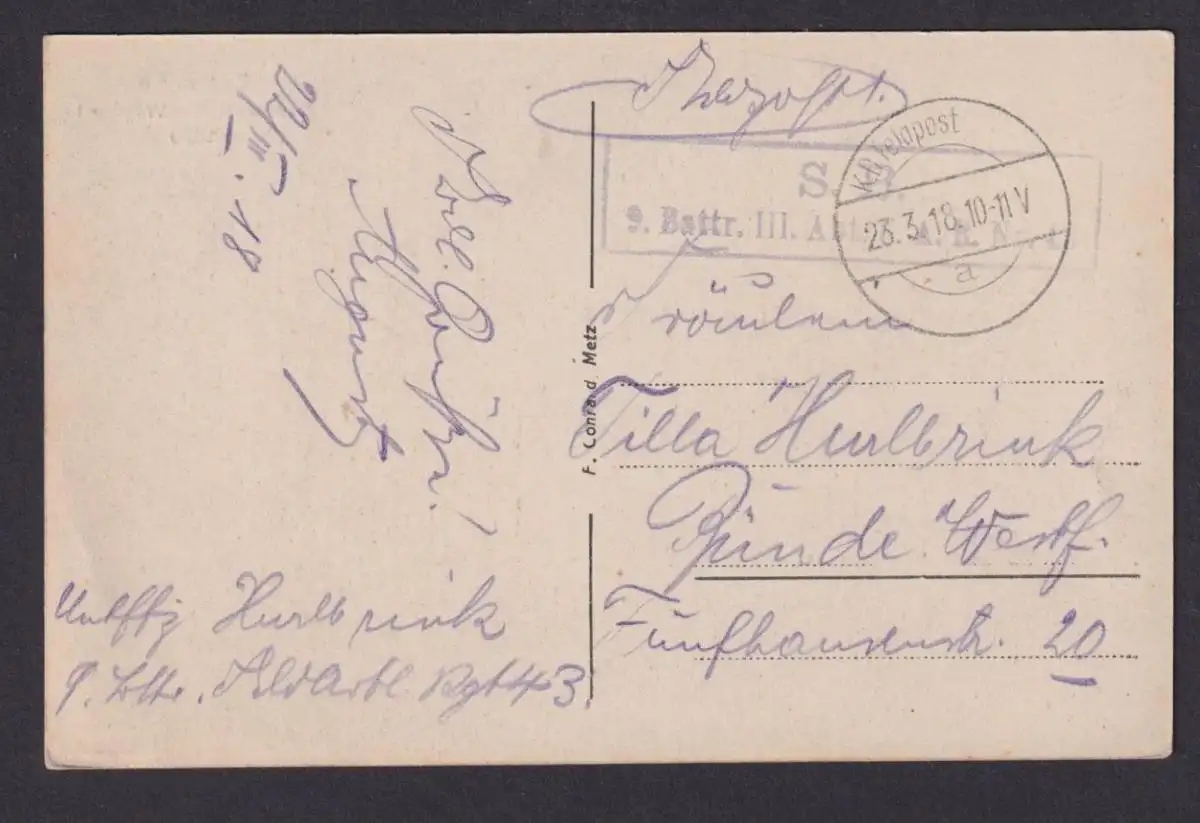 Feldpost.
K.D. Feldpost
23.3.18.10-11V
a
S. B.
9. Battr. III. Abt.
Fräulein
Tilla Hurlbrink
Bünde. Westf.
Fünfhausenstr. 20
F. Conrad. Metz
22/III. 18
Gruß!
Untffz Hurlbrink
9. Bttr. FeldArtl Rgt 43.